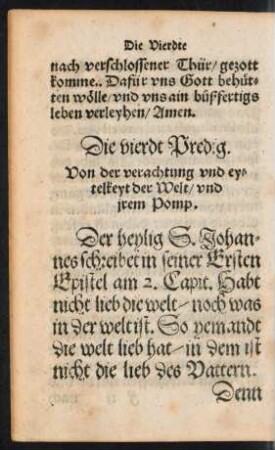 Die Vierdte
nach verschlossener Thür/ gezott
komme.. Dafür vns Gott behüt-
ten wölle/ vnd vns ain büßfertigs
leben verleyhen/ Amen.
Die vierdt Pred:g.
Von der verachtung vnd ey-
telkeyt der Welt/ vnd
jrem Pomp.
Der heylig S. Johan-
nes schreibet in seiner Ersten
Epistel am 2. Capit. Habt
nicht lieb die welt/ noch was
in der welt ist. So yemandt
die welt lieb hat/ in dem ist
nicht die lieb des Vattern.
Denn